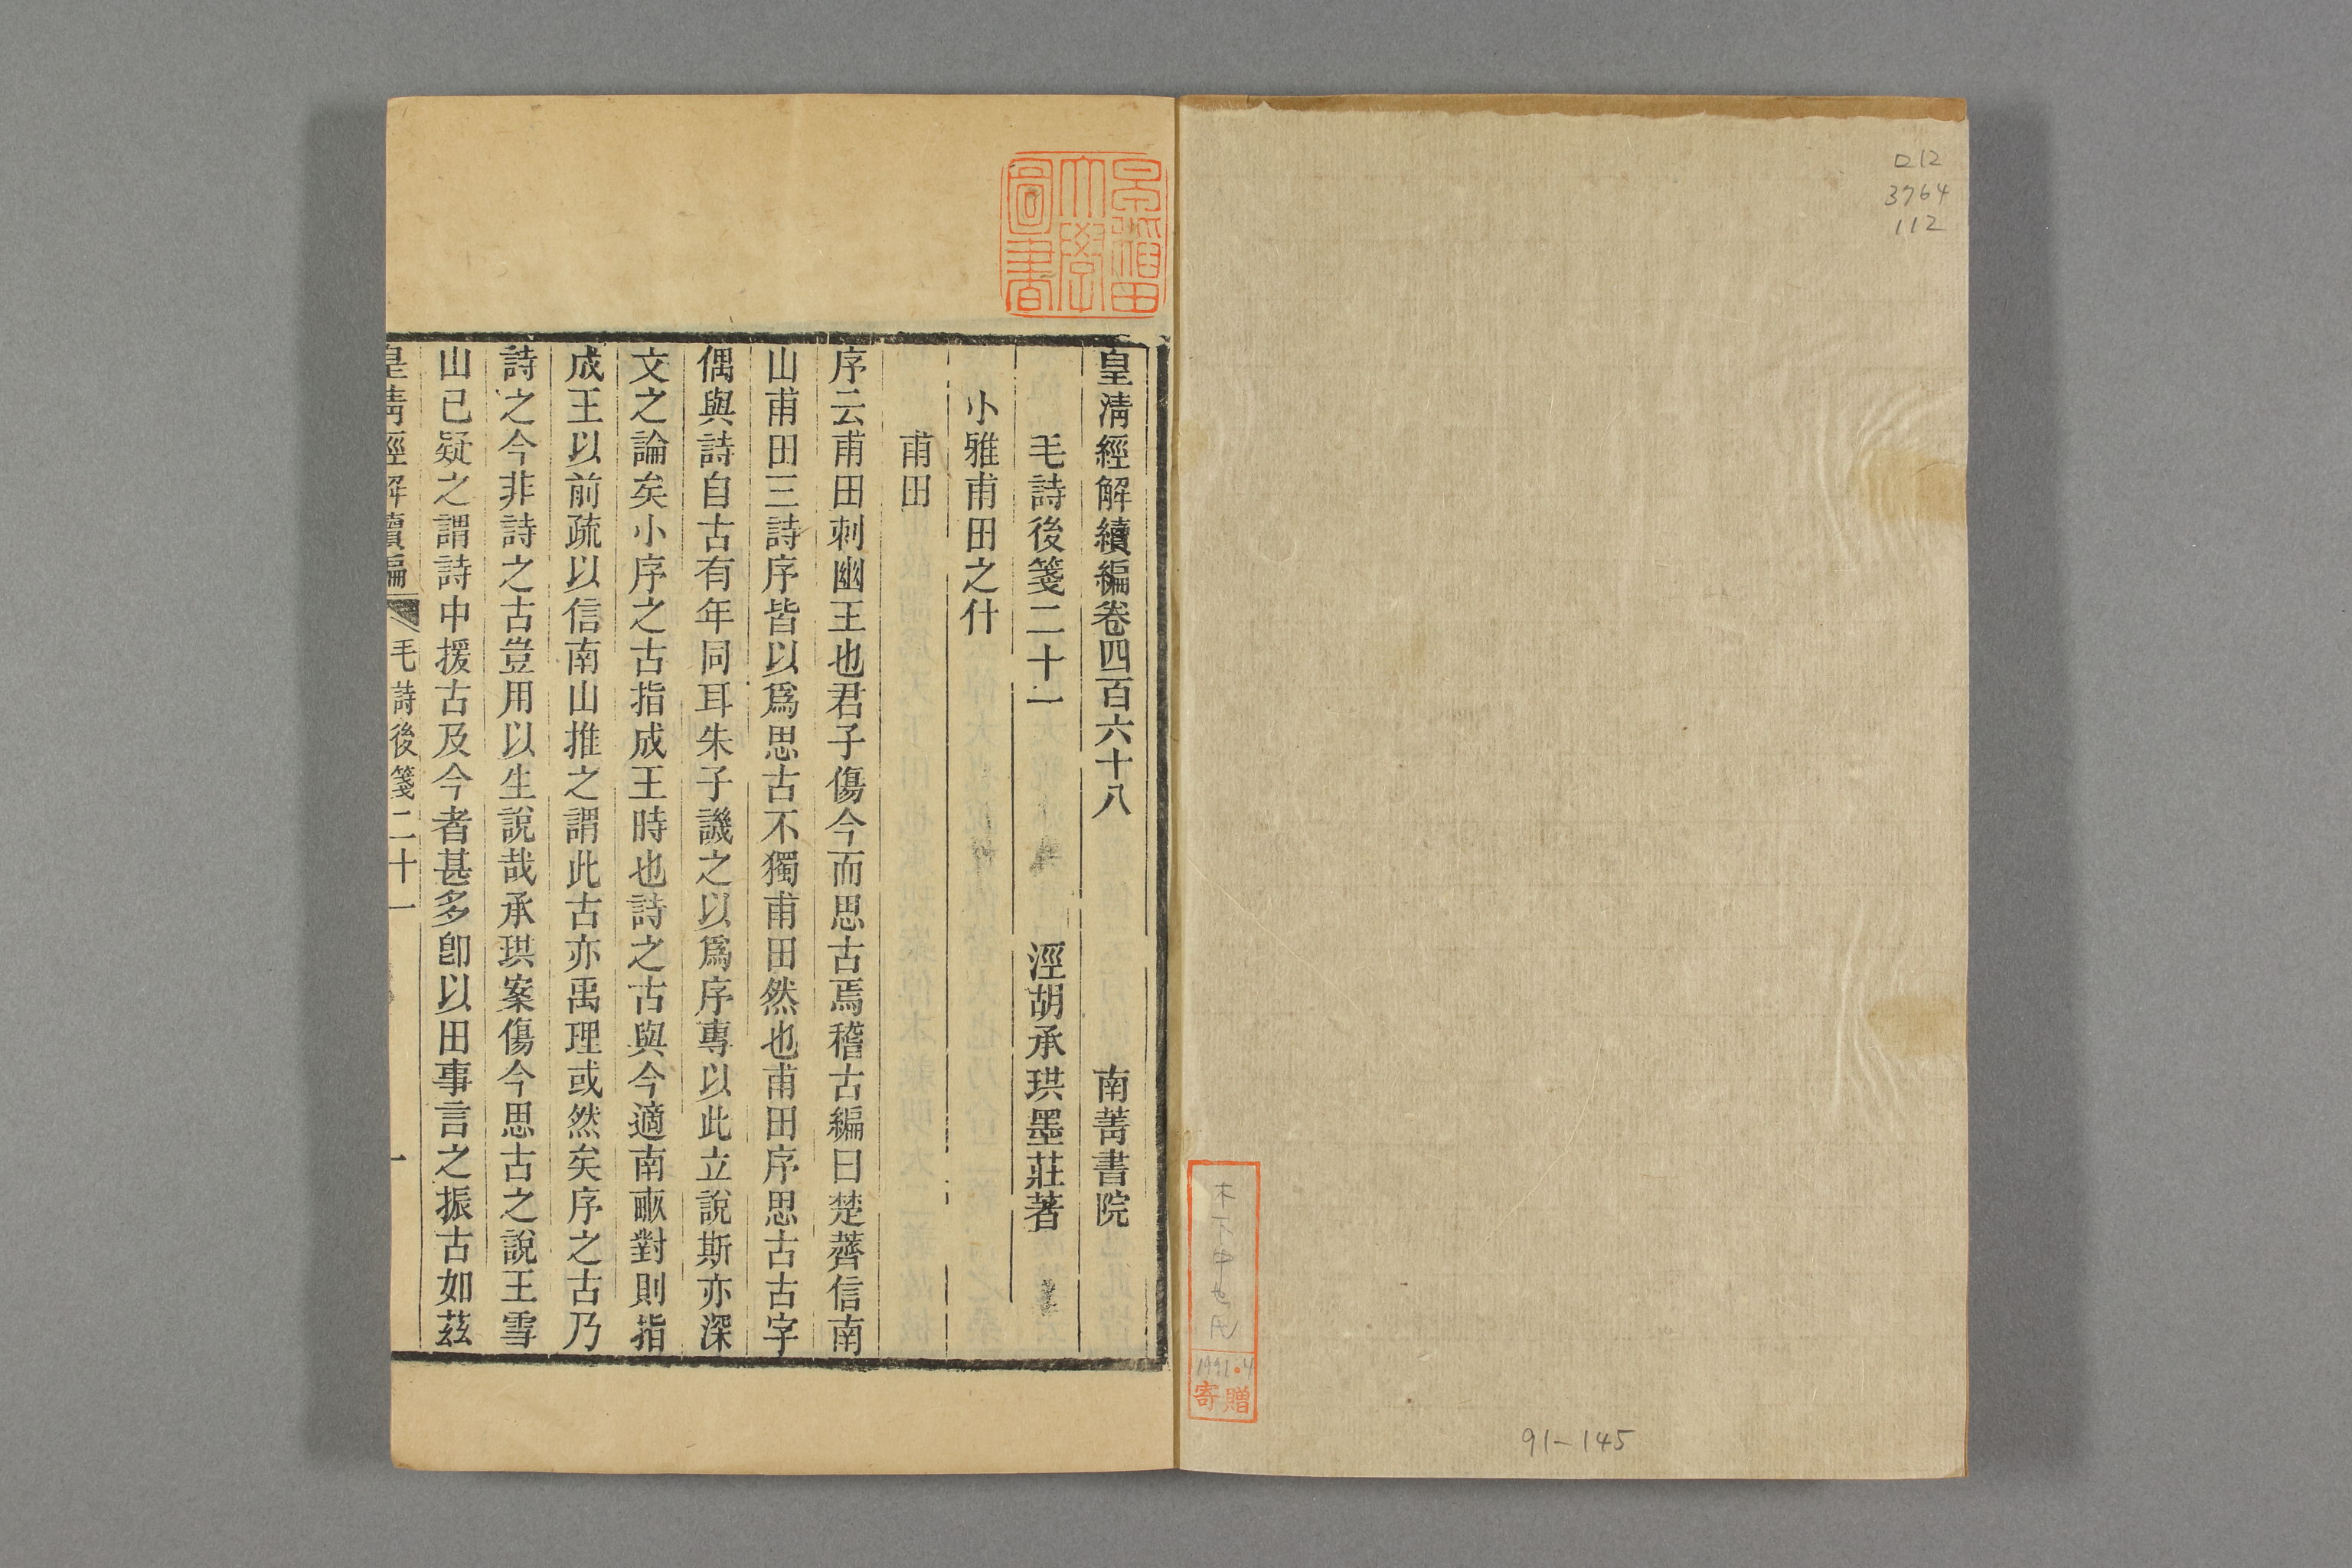 ロ12
3764
112
木下中也氏
1991.4
寄贈
91-145
早稲田大學圖書
皇淸經解續編卷四百六十八 南菁書院
毛詩後箋二十一 涇胡承珙墨莊著
小雅甫田之什
甫田
序云甫田刺幽王也君子傷今而思古焉稽古編曰楚薺信南
山甫田三詩序皆以爲思古不獨甫田然也甫田序思古古字
偶與詩自古有年同耳朱子譏之以爲序專以此立說斯亦深
文之論矣小序之古指成王時也詩之古與今適南畞對則指
成王以前疏以信南山推之謂此古亦禹理或然矣序之古乃
詩之今非詩之古豈用以生說哉承珙案傷今思古之說王雪
山已疑之謂詩中援古及今者甚多卽以田事言之振古如茲
皇淸經解續編 毛詩後箋二十一 一